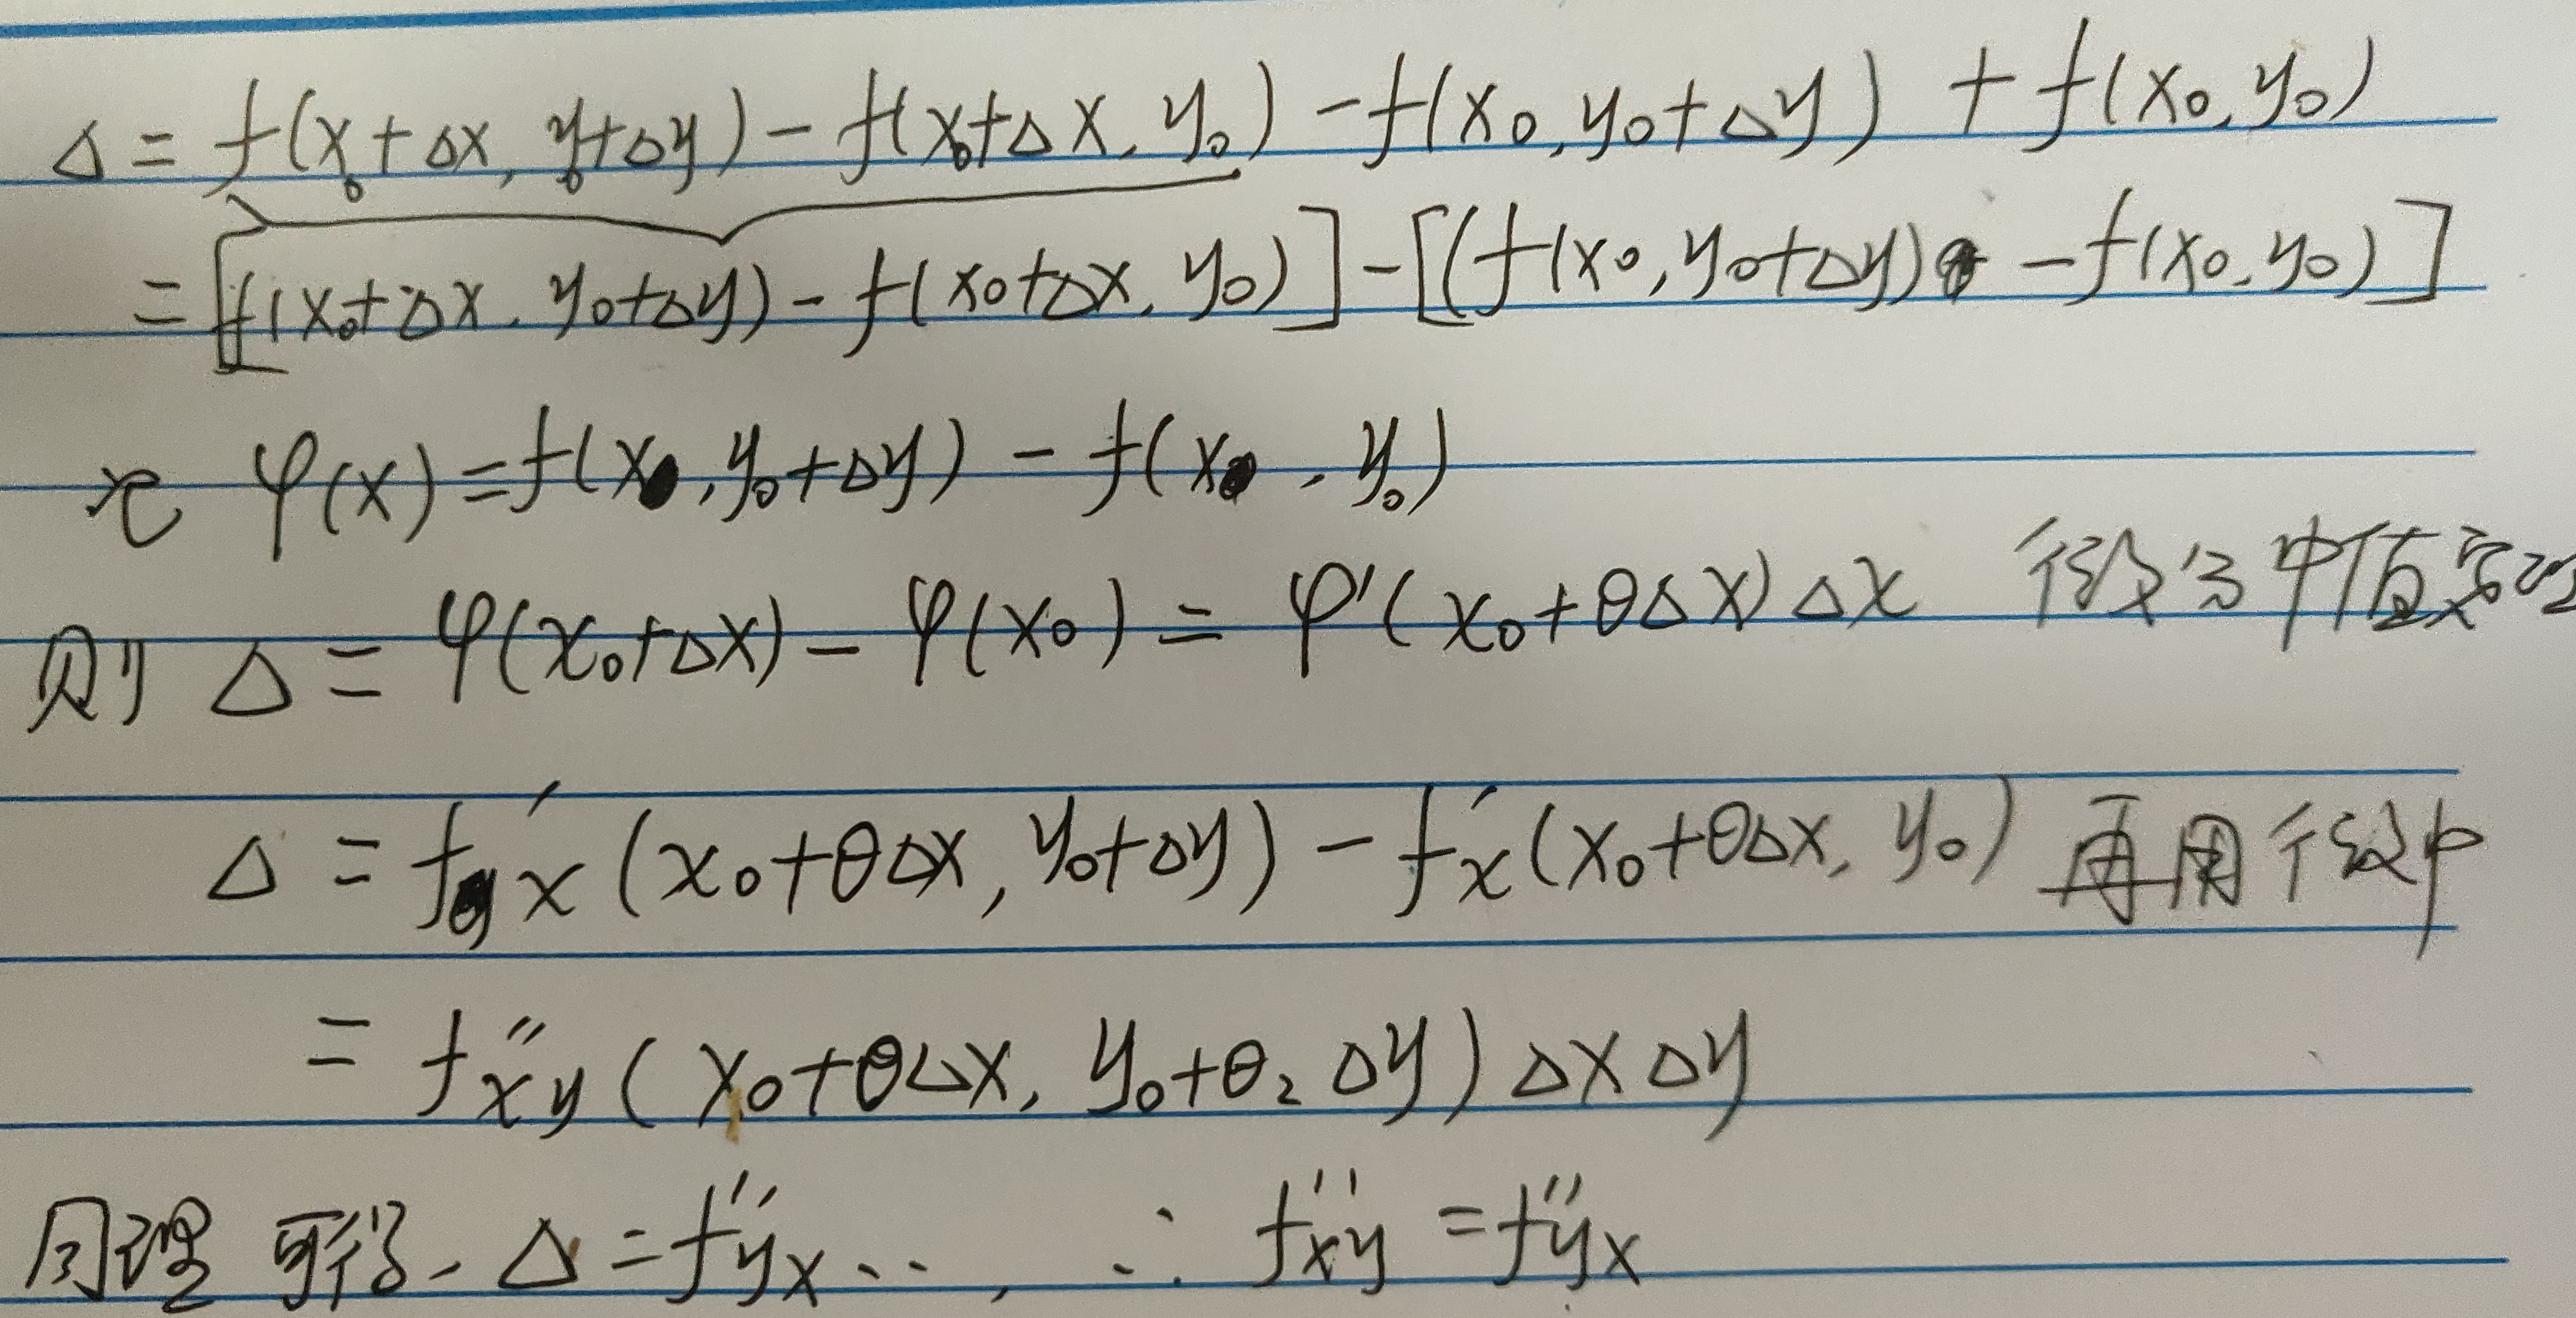 Δ = f(x₀+Δx, y₀+Δy) - f(x₀+Δx, y₀) - f(x₀, y₀+Δy) + f(x₀, y₀)
= [f(x₀+Δx, y₀+Δy) - f(x₀+Δx, y₀)] - [(f(x₀, y₀+Δy) - f(x₀, y₀)]
记 φ(x) = f(x, y₀+Δy) - f(x, y₀)
则 Δ = φ(x₀+Δx) - φ(x₀) = φ'(x₀+θΔx)Δx 微分中值定理
Δ = f'x(x₀+θΔx, y₀+Δy) - f'x(x₀+θΔx, y₀) 再用微中
= f''xy(x₀+θΔx, y₀+θ₂Δy)ΔxΔy
同理可得, Δ = f''yx..., ∴ f''xy = f''yx